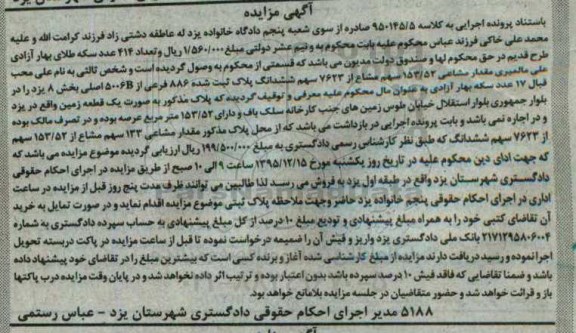 آگهی مزایده
باستناد پرونده اجرایی به کلاسه ۹۵۰۱۴۵/۵ صادره از سوی شعبه پنجم دادگاه خانواده یزد له عاطفه دشتی زاد فرزند کرامت الله و علیه
محمد علی خاکی فرزند عباس محکوم علیه بابت محکوم به و نیم عشر دولتی مبلغ ۱/۵۶۰/۰۰۰ ریال و تعداد ۴۱۴ عدد سکه طلای بهار آزادی
طرح قدیم در حق محکوم لها و صندوق دولت مدیون می باشد که قسمتی از محکوم به وصول گردیده است و شخص ثالثی به نام علی محب
علی مالمیری مقدار مشاعی ۱۵۳/۵۲ سهم مشاع از ۷۶۲۳ سهم ششدانگ پلاک ثبت شده ۸۸۶ فرعی از ۵۰۰۶B اصلی بخش ۸ یزد را در
قبال ۱۷ عدد سکه بهار آزادی به عنوان مال محکوم علیه معرفی و توقیف گردیده که پلاک مذکور به صورت یک قطعه زمین واقع در یزد
بلوار جمهوری بلوار استقلال خیابان طوس زمین های جنب کارخانه سلک باف و دارای ۱۵۳/۵۲ متر مربع عرصه بوده و در تصرف مالک بوده
و در اجاره نمی باشد و بابت پرونده اجرایی در بازداشت می باشد که از محل پلاک مذکور مقدار مشاعی ۱۳۳ سهم مشاع از ۱۵۳/۵۲ سهم
از ۷۶۲۳ سهم ششدانگ که طبق نظر کارشناس رسمی دادگستری به مبلغ ۱۹۹/۵۰۰/۰۰۰ ریال ارزیابی گردیده موضوع مزایده می باشد که
که جهت ادای دین محکوم علیه در تاریخ روز یکشنبه مورخ ۱۳۹۵/۱۲/۱۵ ساعت ۹ الی ۱۰ صبح از طریق مزایده در اجرای احکام حقوقی
دادگستری شهرستان یزد واقع در طبقه اول یزد به فروش می رسید لذا طالبین می توانند ظرف مدت پنج روز قبل از مزایده در ساعت
اداری در اجرای احکام حقوقی پنجم خانواده یزد حاضر و جهت ملاحظه پلاک ثبتی موضوع مزایده اقدام نماید و در صورت تمایل به خرید
آن تقاضای کتبی خود را به همراه مبلغ پیشنهادی و تودیع مبلغ ۱۰ درصد از کل مبلغ پیشنهادی به حساب سپرده دادگستری به شماره
۲۱۷۱۲۹۵۸۰۶۰۰۴ بانک ملی دادگستری یزد واریز و فیش آن را ضمیمه درخواست نموده تا قبل از ساعت مزایده در پاکت دربسته تحویل
اجرا نموده و رسید دریافت دارند مزایده از مبلغ کارشناسی شده آغاز و برنده کسی است که بیشترین مبلغ را در تقاضای خود پیشنهاد داده
باشد و ضمنا تقاضایی که فاقد فیش ۱۰ درصد سپرده باشد بدون اعتبار بوده و ترتیب اثر داده نخواهد شد و در پایان وقت مزایده درب پاکتها
باز و قرائت خواهد شد و حضور متقاضیان در جلسه مزایده بلامانع خواهد بود.
۵۱۸۸ مدیر اجرای احکام حقوقی دادگستری شهرستان یزد - عباس رستمی